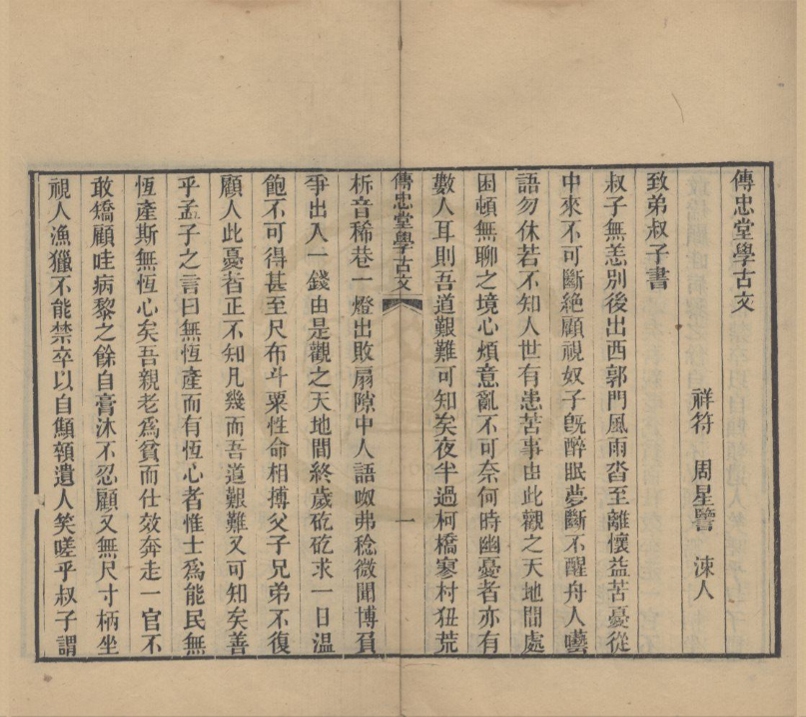 傳忠堂學古文
祥符 周星譽 涑人
致弟叔子書
叔子無恙別後出西郭門風雨沓至離懷益苦憂從
中來不可斷絕顧視奴子旣醉眠夢斷不醒舟人囈
語勿休若不知人世有患苦事由此觀之天地間處
困頓無聊之境心煩意亂不可奈何時幽憂者亦有
數人耳則吾道艱難可知矣夜半過柯橋寥村狃荒
傳忠堂學古文 一
柝音稀巷一燈出敗扇隙中人語呶弗稔微聞博負
爭出入一錢由是觀之天地間終歲矻矻求一日溫
飽不可得甚至尺布斗粟性命相搏父子兄弟不復
顧人此憂者正不知凡幾而吾道艱難又可知矣善
乎孟子之言曰無恆產而有恆心者惟士爲能民無
恆產斯無恆心矣吾親老爲貧而仕效奔走一官不
敢矯顧哇病黎之餘自膏沐不忍顧又無尺寸柄坐
視人漁獵不能禁卒以自顦顇遺人笑嗟乎叔子謂